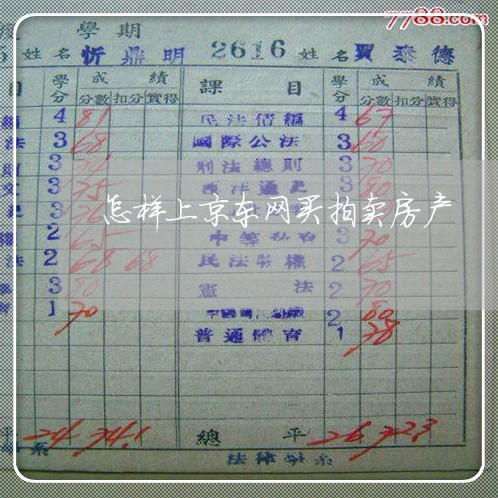 7788.com
學期
姓名 忻鼎明 2616 姓名 賈泰德
目 學分 成績 課目 學分 成績
分數 扣分 實得 分數 扣分 實得
4 81 民法債編 4 67
法 3 68 國際公法 3 60
3 刑法總則 3 70
3 75 3
怎样上京东网买拍卖房产
2 65 3 70
法 2 68 68 民法物權 2 65
3 80 憲法 2
1 70 2 80
普通體育 1 78
平 24 74.1 總平 26 72.3
系 法律學系